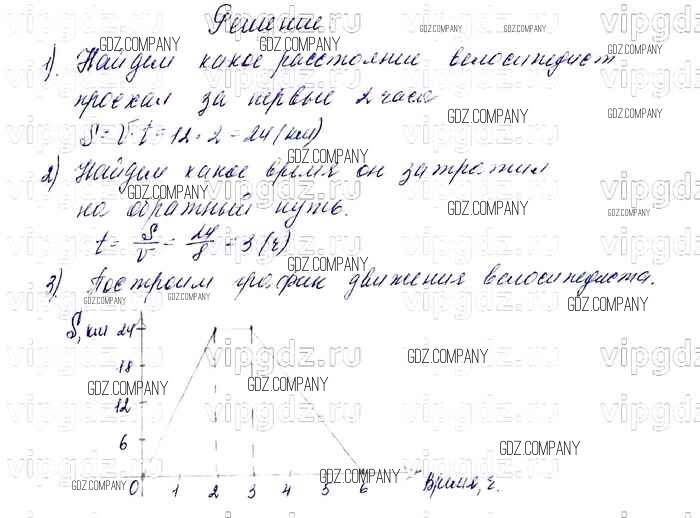 Решение
1). Найдем какое расстояние велосипедист
проехал за первые 2 часа
S = V · t = 12 · 2 = 24 (км)
2) Найдем какое время он затратил
на обратный путь.
t = S/v = 24/8 = 3 (ч)
3). Построим график движения велосипедиста.
S, км 24
18
12
6
0 1 2 3 4 5 6 Время, ч.
vipgdz.ru
GDZ.COMPANY